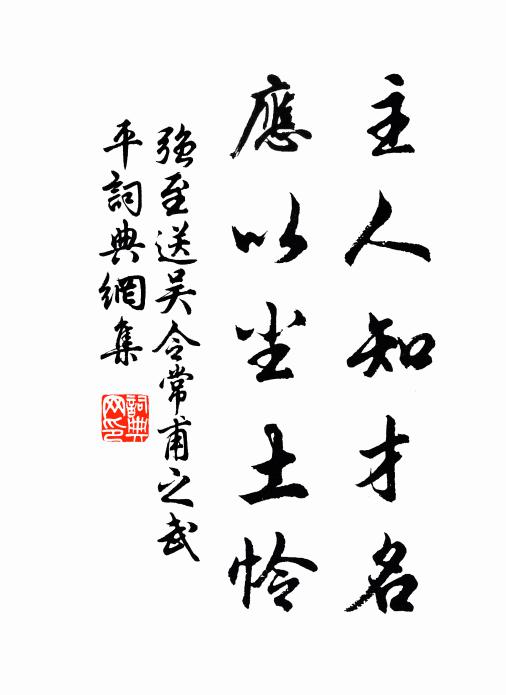 主人知才名
應以尘土怜
强至送吴令常甫之武
平詞典網集
詞典
网印